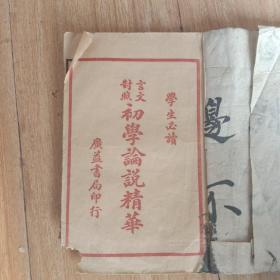 學生必讀
言文對照
初學論說精華
廣益書局印行
邊不